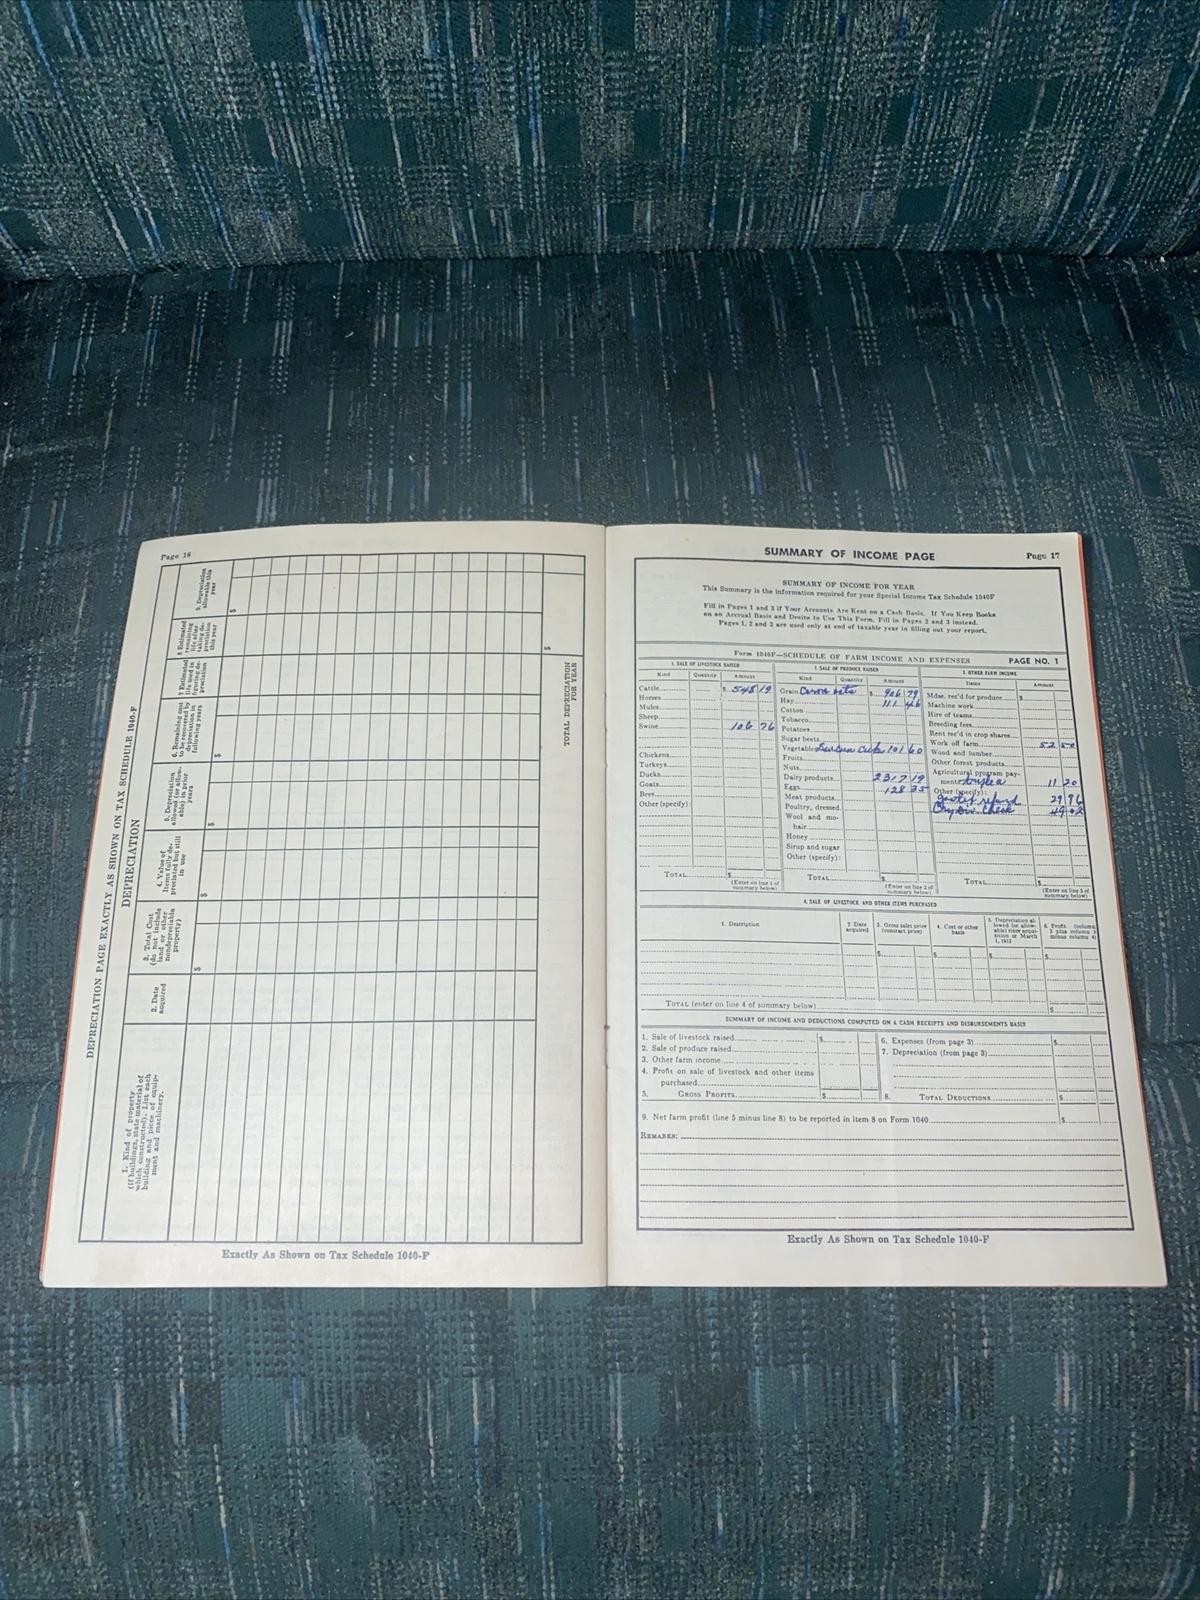 Page 16
DEPRECIATION PAGE EXACTLY AS SHOWN ON TAX SCHEDULE 1040-F
DEPRECIATION
1. Kind of property
(if buildings, state material of
which constructed). List each
building and piece of equip-
ment and machinery.
2. Date
acquired
3. Total Cost
(do not include
land or other
nondepreciable
property)
$
4. Value of
items fully de-
preciated but still
in use
$
5. Depreciation
allowed (or allow-
able) in prior
years
$
6. Remaining cost
to be recovered by
depreciation in
following years
$
7 Estimated
life used in
figuring de-
preciation
8 Estimated
remaining
life after
taking de-
preciation
this year
9. Depreciation
allowable this
year
$
TOTAL DEPRECIATION
FOR YEAR
$
Exactly As Shown on Tax Schedule 1040-F
SUMMARY OF INCOME PAGE
Page 17
SUMMARY OF INCOME FOR YEAR
This Summary is the information required for your Special Income Tax Schedule 1040F
Fill in Pages 1 and 3 if Your Accounts Are Kept on a Cash Basis. If You Keep Books
on an Accrual Basis and Desire to Use This Form, Fill in Pages 2 and 3 instead.
Pages 1, 2 and 3 are used only at end of taxable year in filling out your report.
Form 1040F—SCHEDULE OF FARM INCOME AND EXPENSES PAGE NO. 1
1. SALE OF LIVESTOCK RAISED
Kind Quantity Amount
Cattle $ 548 19
Horses
Mules
Sheep
Swine 106 76
Chickens
Turkeys
Ducks
Goats
Bees
Other (specify):
TOTAL $
(Enter on line 1 of
summary below)
2. SALE OF PRODUCE RAISED
Kind Quantity Amount
Grain $ 906 79
Hay 111 46
Cotton
Tobacco
Potatoes
Sugar beets
Vegetables 101 60
Fruits
Nuts
Dairy products 2317 19
Eggs 128 35
Meat products
Poultry, dressed
Wool and mo-
hair
Honey
Sirup and sugar
Other (specify):
TOTAL $
(Enter on line 2 of
summary below)
3. OTHER FARM INCOME
Items Amount
Mdse. rec'd for produce $
Machine work
Hire of teams
Breeding fees
Rent rec'd in crop shares
Work off farm 52 50
Wood and lumber
Other forest products
Agricultural program pay-
ments 11 20
Other (specify):
refund 29 96
check 49 02
TOTAL $
(Enter on line 3 of
summary below)
4. SALE OF LIVESTOCK AND OTHER ITEMS PURCHASED
1. Description
2. Date
acquired
3. Gross sales price
(contract price)
$
4. Cost or other
basis
$
5. Depreciation al-
lowed (or allow-
able) since acqui-
sition or March
1, 1913
$
6. Profit (column
3 plus column 5
minus column 4)
$
TOTAL (enter on line 4 of summary below) $
SUMMARY OF INCOME AND DEDUCTIONS COMPUTED ON A CASH RECEIPTS AND DISBURSEMENTS BASIS
1. Sale of livestock raised $
2. Sale of produce raised
3. Other farm income
4. Profit on sale of livestock and other items
purchased
5. GROSS PROFITS $
6. Expenses (from page 3) $
7. Depreciation (from page 3)
8. TOTAL DEDUCTIONS $
9. Net farm profit (line 5 minus line 8) to be reported in item 8 on Form 1040 $
REMARKS:
Exactly As Shown on Tax Schedule 1040-F